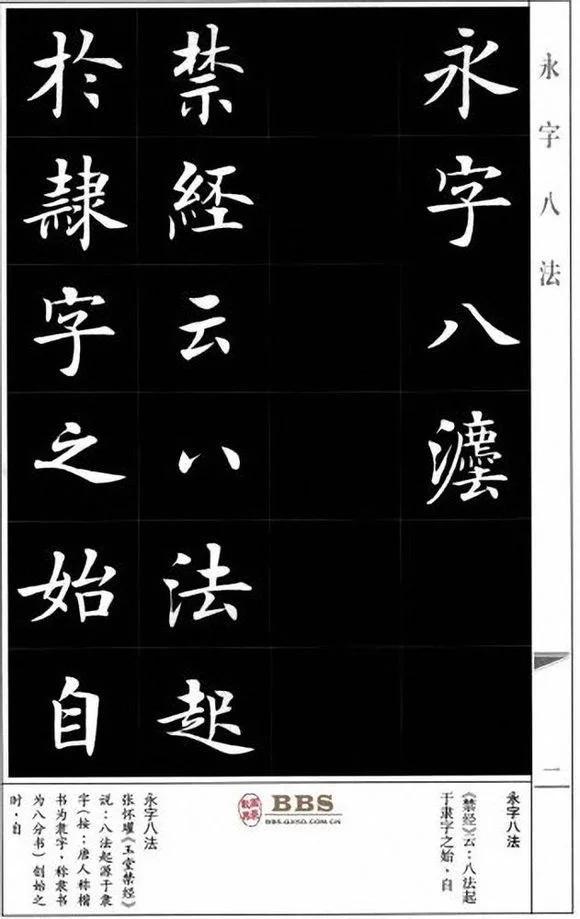 永字八法
一
永字八灋
禁經云八法起
於隸字之始自
永字八法
《禁经》云：八法起
于隶字之始，自
BBS
BBS.GXSD.COM.CN
永字八法
张怀瓘《玉堂禁经》
说：八法起源于隶
字（按：唐人称楷
书为隶字，称隶书
为八分书）创始之
时，自